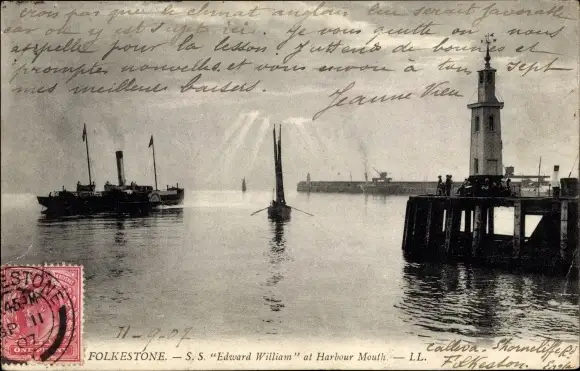 crois pas que le climat anglais lui serait favorable
car on y est très pris ici. Je vous quitte on nous
appelle pour la leçon J'attends de bonnes et
promptes nouvelles et vous envoie à tous Sept
mes meilleurs baisers.
Jeanne Vieu
FOLKESTONE
45 PM
SP 11
07
ONE PENNY
11-9-07
FOLKESTONE. — S. S. "Edward William" at Harbour Mouth. — LL.
Shorncliffe
Folkeston.